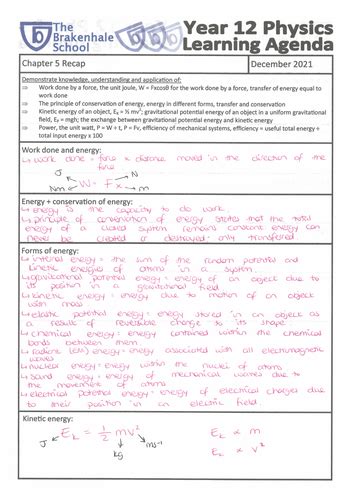 The
Brakenhale
School
Year 12 Physics
Learning Agenda
Chapter 5 Recap
December 2021
Demonstrate knowledge, understanding and application of:
Work done by a force, the unit joule, W = Fxcosθ for the work done by a force, transfer of energy equal to
work done
The principle of conservation of energy, energy in different forms, transfer and conservation
Kinetic energy of an object, Eₖ = ½ mv²; gravitational potential energy of an object in a uniform gravitational
field, Eₚ = mgh; the exchange between gravitational potential energy and kinetic energy
Power, the unit watt, P = W ÷ t, P = Fv, efficiency of mechanical systems, efficiency = useful total energy ÷
total input energy x 100
Work done and energy:
↳ work done = force x distance moved in the direction of the
force
J N
Nm W = Fx m
Energy + conservation of energy:
↳ energy is the capacity to do work
↳ principle of conservation of energy states that the total
energy of a closed system remains constant energy can
never be created or destroyed only transferred
Forms of energy:
↳ internal energy = the sum of the random potential and
kinetic energies of atoms in a system
↳ gravitational potential energy = energy of an object due to
its position in a gravitational field
↳ kinetic energy = energy due to motion of an object
with mass
↳ elastic potential energy = energy stored in an object as
a result of reversible change to its shape
↳ chemical energy = energy contained within the chemical
bonds between them
↳ radiant (EM) energy = energy associated with all electromagnetic
waves
↳ nuclear energy = energy within the nuclei of atoms
↳ sound energy = energy of mechanical waves due to
the movement of atoms
↳ electrical potential energy = energy of electrical charges due
to their position in an electric field
Kinetic energy:
J Eₖ = 1/2 mv² ms⁻¹
kg
Eₖ ∝ m
Eₖ ∝ v²